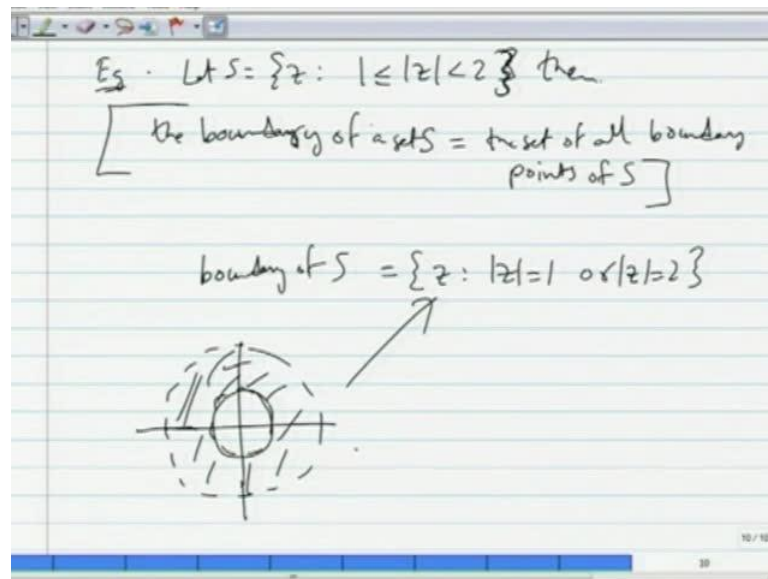 Eg. Let S = {z : 1 ≤ |z| < 2} then
[ the boundary of a set S = the set of all boundary
points of S ]
boundary of S = {z : |z|=1 or |z|=2}
10 / 10
10